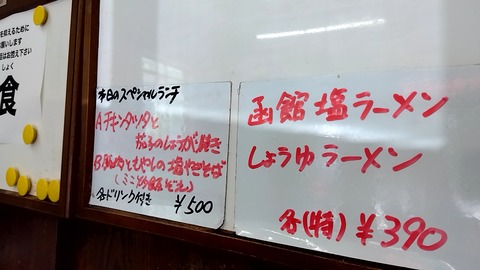 を控えるために
お願いします
はお控え下さい
しょく
食
本日のスペシャルランチ
Aチキンタツタと
茄子のしょうが焼き
B豚肉ともやしの塩やきそば
(ミニ炒飯ぞえ)
各ドリンク付き ¥500
函館塩ラーメン
しょうゆラーメン
各(特)¥390